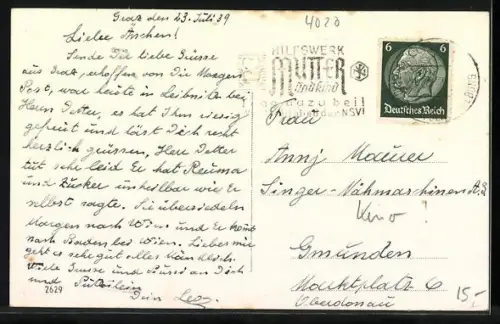 Graz den 23. Juli 39
4020
Liebe
Sende Dir liebe Grüsse
aus Graz, erhoffen von Dir Morgen
Post, war heute in Leibnitz bei
Herrn Detter, es hat Ihm riesig
gefreut und läst Dich recht
herzlich grüssen, Herr Detter
tut sehr leid Er hat Reuma
und Zucker unheilbar wie Er
selbst sagte. Sie übersiedeln
Morgen nach Wien und Er kommt
nach Baden bei Wien. Liebes mir
geht es sehr gut alles händlich.
Viele Grüsse und Bussi an Dich
und
Dein Leo.
2629
HILFSWERK
MUTTER
und Kind
dazu bei!
der NSV!
6 6
Deutsches Reich
Frau
Anny Maurer
Singer-Nähmaschinen A.G.
Kino!
Gmunden
Marktplatz 6
Oberdonau
15,-